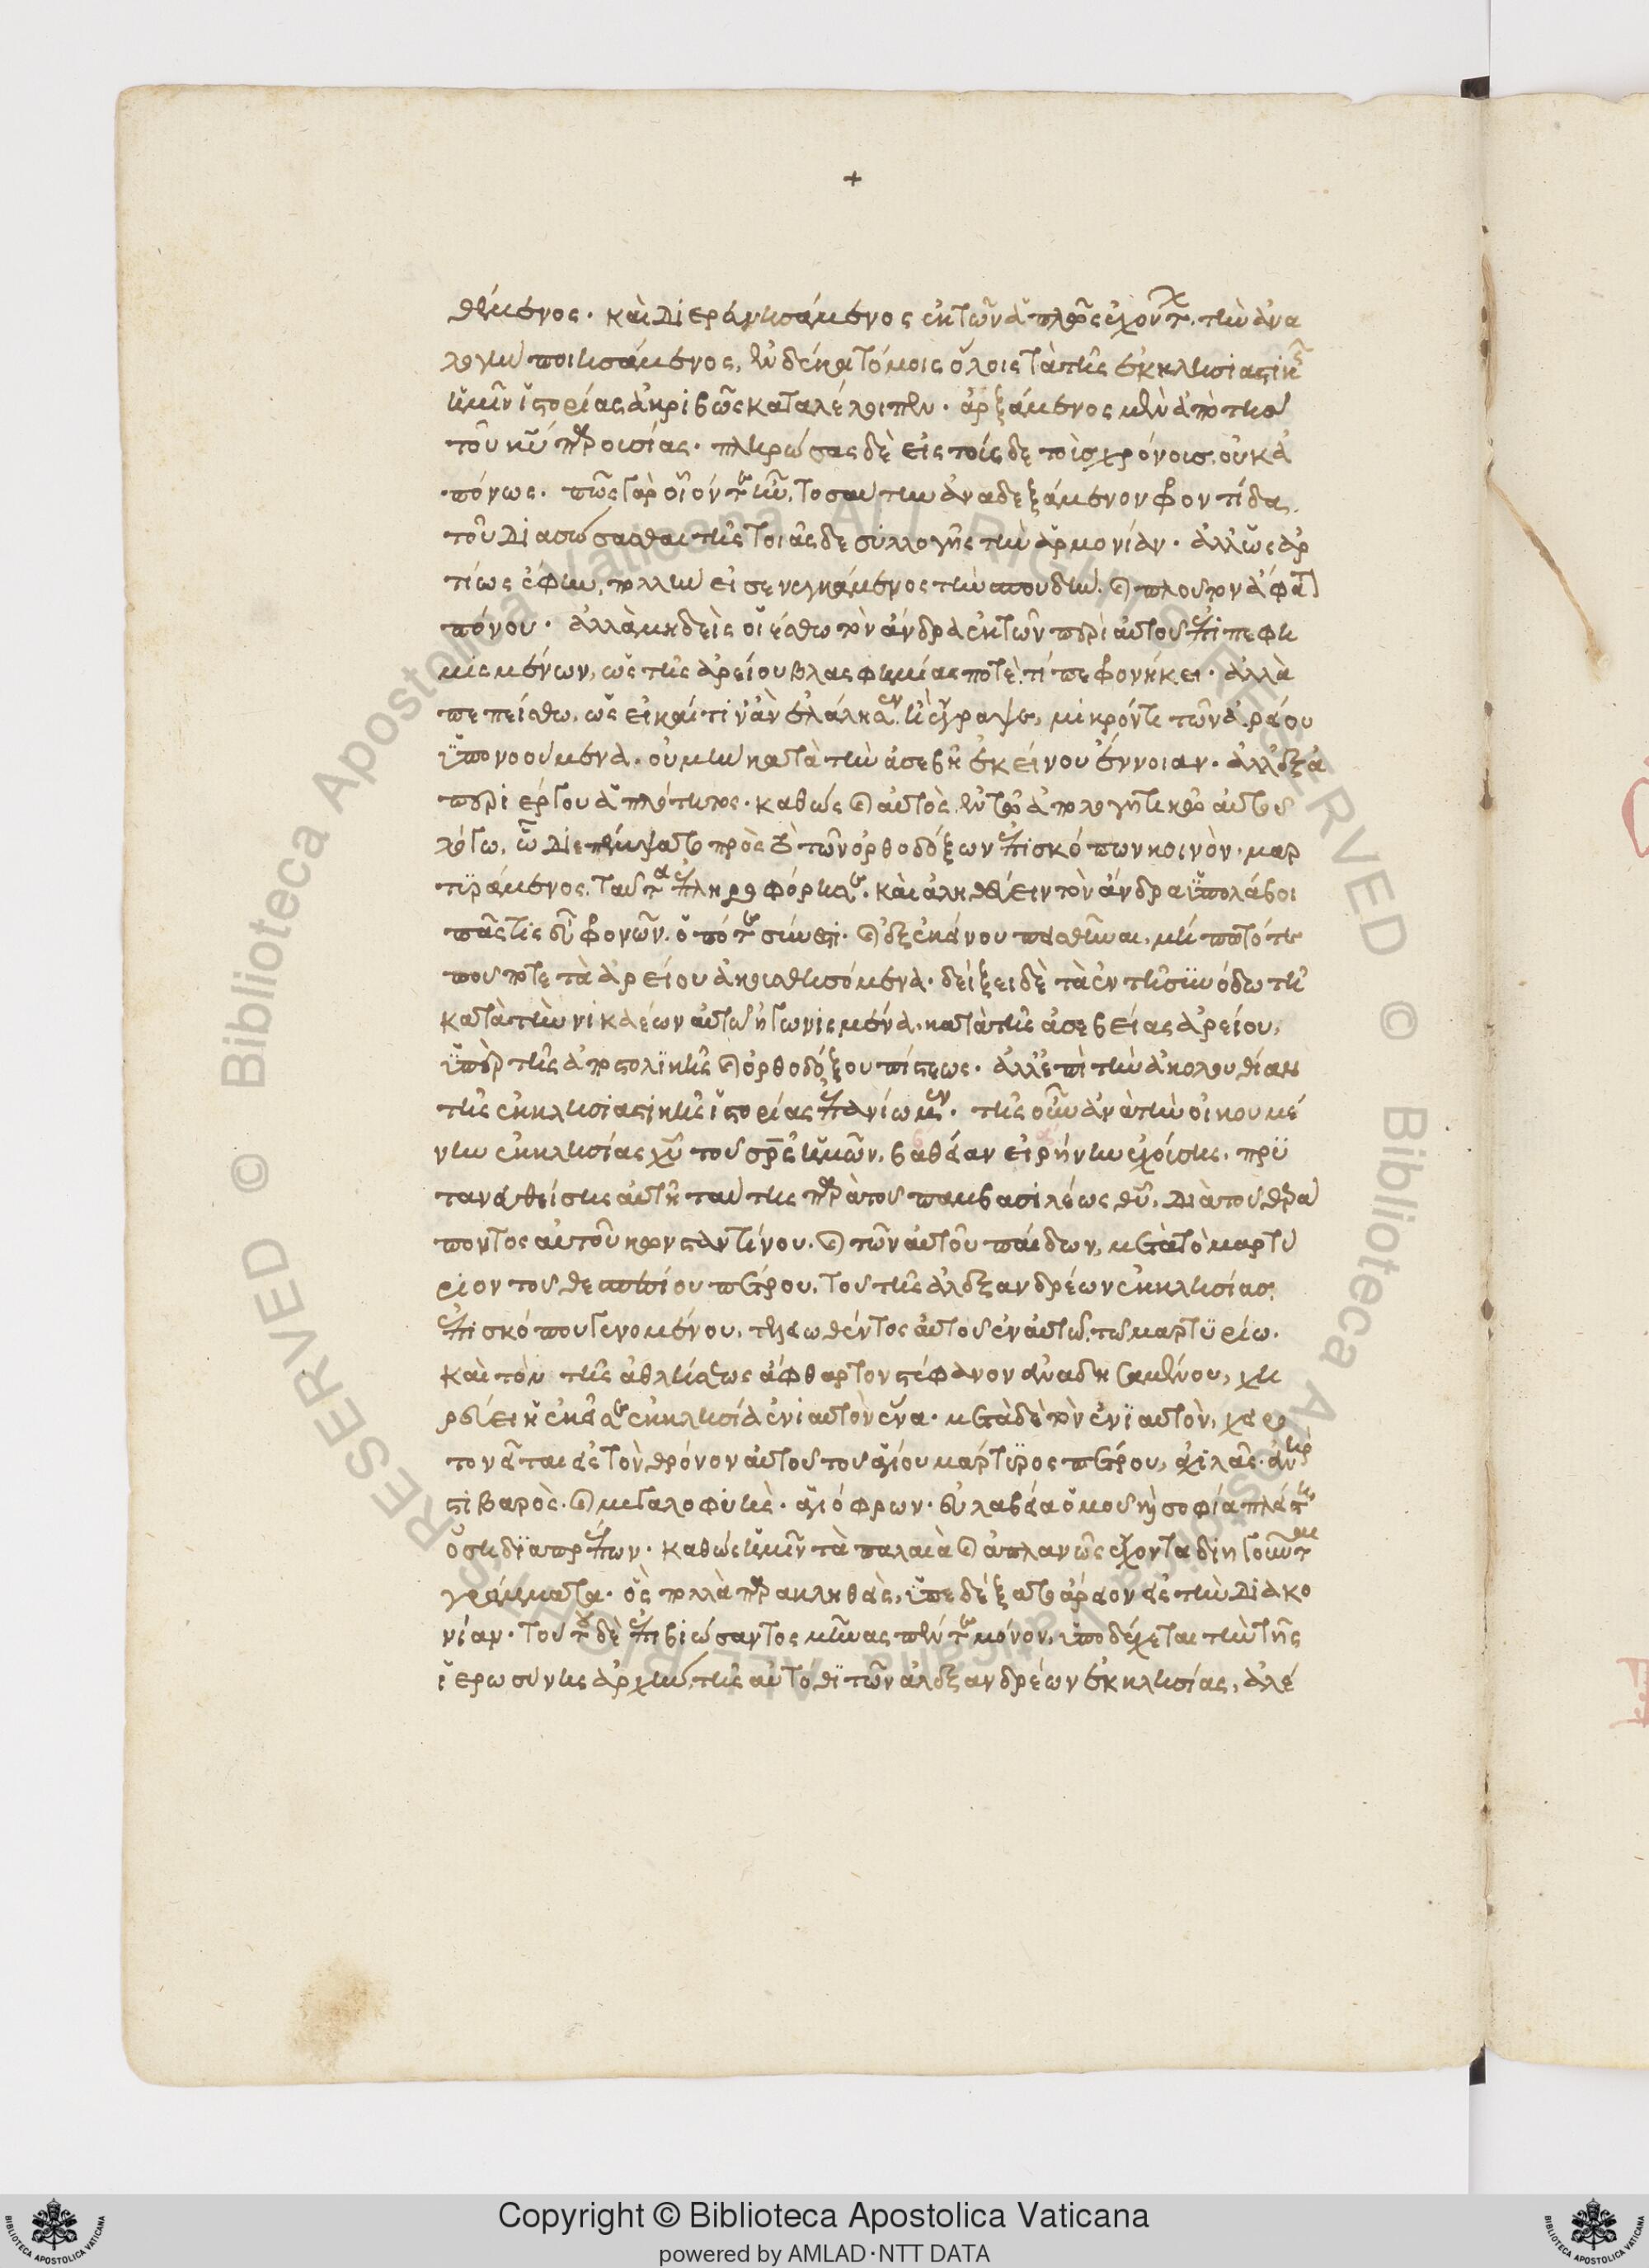 +
θέμενος. καὶ διερανησάμενος ἐκ τῶν ἁπλῶς ἐχόντων, τὴν ἀνα
λογὴν ποιησάμενος, ἐν δέκα τόμοις ὅλοις τὰ τῆς ἐκκλησιαστικῆς
ἡμῖν ἱστορίας ἀκριβῶς καταλέλοιπεν. ἀρξάμενος μὲν ἀπὸ τῆς
τοῦ κυ παρουσίας. πληρώσας δὲ εἰς τοίσδε τοῖς χρόνοις, οὐκ ἀ
πόνως. πῶς γὰρ οἷόν τε ἦν, τοσαύτην ἀναδεξάμενον φροντίδα,
τοῦ διασώσασθαι τῆς τοιᾶσδε συλλογῆς τὴν ἁρμονίαν. ἀλλ' ὡς ἀρ
τίως ἔφην, πολλὴν εἰσενεγκάμενος τὴν σπουδὴν, καὶ πλοῦτον ἄφατον
πόνου. ἀλλὰ μηδεὶς οἰέσθω τὸν ἄνδρα ἐκ τῶν περὶ αὐτοῦ ἐπιπεφη
μισμένων, ὡς τῆς ἀρείου βλασφημίας ποτέ τι πεφρονήκει. ἀλλὰ
πεπείσθω, ὡς εἰ καί τι γ' ἂν ἐλάλησεν ἢ ἔγραψε, μικρόν τι τῶν ἀρείου
ὑπονοούμενα. οὐ μὴν κατὰ τὴν ἀσεβῆ ἐκείνου ἔννοιαν. ἀλλ' ἐξ ἀ
περιέργου ἁπλότητος. καθὼς καὶ αὐτὸς ἐν τῷ ἀπολογητικῷ αὐτοῦ
λόγῳ, ᾧ διεπέμψατο πρὸς τὸ τῶν ὀρθοδόξων ἐπισκόπων κοινὸν, μαρ
τυράμενος, ταῦτα ἐπληροφόρησε. καὶ ἀληθεύειν τὸν ἄνδρα ὑπολάβοι
πᾶς τις εὖ φρονῶν. ὁπότε σύνεστι καὶ ἐξ ἐκείνου πεισθῆναι, μή πώποτέ
που τότε τὰ ἀρείου ἀκριαθησόμενα. δείξει δὲ τὰ ἐν τῇ συνόδῳ τῇ
κατὰ τὴν νικαέων αὐτῷ ἠγωνισμένα, κατὰ τῆς ἀσεβείας ἀρείου,
ὑπὲρ τῆς ἀποστολικῆς καὶ ὀρθοδόξου πίστεως. ἀλλ' ἐπὶ τὴν ἀκολουθίαν
τῆς ἐκκλησιαστικῆς ἱστορίας ἐπανίωμεν. τῆς οὖν ἀνὰ τὴν οἰκουμέ
νην ἐκκλησίας χυ τοῦ σρς ἡμῶν, βαθεῖαν εἰρήνην ἐχούσης. πρυ
τανευθείσης αὐτῇ ταύτης παρὰ τοῦ παμβασιλέως θυ, διὰ τοῦ θερά
ποντος αὐτοῦ κωνσταντίνου. καὶ τῶν αὐτοῦ παίδων, μετὰ τὸ μαρτύ
ριον τοῦ θεσπεσίου πέτρου, τοῦ τῆς ἀλεξανδρέων ἐκκλησίας
ἐπισκόπου γενομένου, τελειωθέντος αὐτοῦ ἐν αὐτῷ τῷ μαρτυρίῳ.
καὶ τὸν τῆς ἀθλήσεως ἄφθαρτον στέφανον ἀναδησαμένου, χη
ρεύει ἡ ἐκεῖσε ἐκκλησία ἐνιαυτὸν ἕνα. μετὰ δὲ τὸν ἐνιαυτὸν, χειρο
τονεῖται εἰς τὸν θρόνον αὐτοῦ τοῦ ἁγίου μάρτυρος πέτρου, ἀχιλᾶς. ἀνὴρ
στιβαρὸς. καὶ μεγαλοφυὴς. ἁγιόφρων. εὐλαβείᾳ ὁμοῦ καὶ σοφίᾳ πλείστῃ
ὅση διαπρέπων. καθὼς ἡμῖν τὰ παλαιὰ καὶ ἀπλανῶς ἔχοντα διηγοῦνται
γράμματα. ὃς πολλὰ παρακληθεὶς, ὑπεδέξατο ἄρειον εἰς τὴν διακο
νίαν. τούτου δὲ ἐπιβιώσαντος μῆνας πέντε μόνον, ὑποδέχεται τὴν τῆς
ἱερωσύνης ἀρχὴν, τῆς αὐτόθι τῶν ἀλεξανδρέων ἐκκλησίας, ἀλέ
© Biblioteca Apostolica Vaticana ALL RIGHTS RESERVED
Copyright © Biblioteca Apostolica Vaticana
powered by AMLAD·NTT DATA